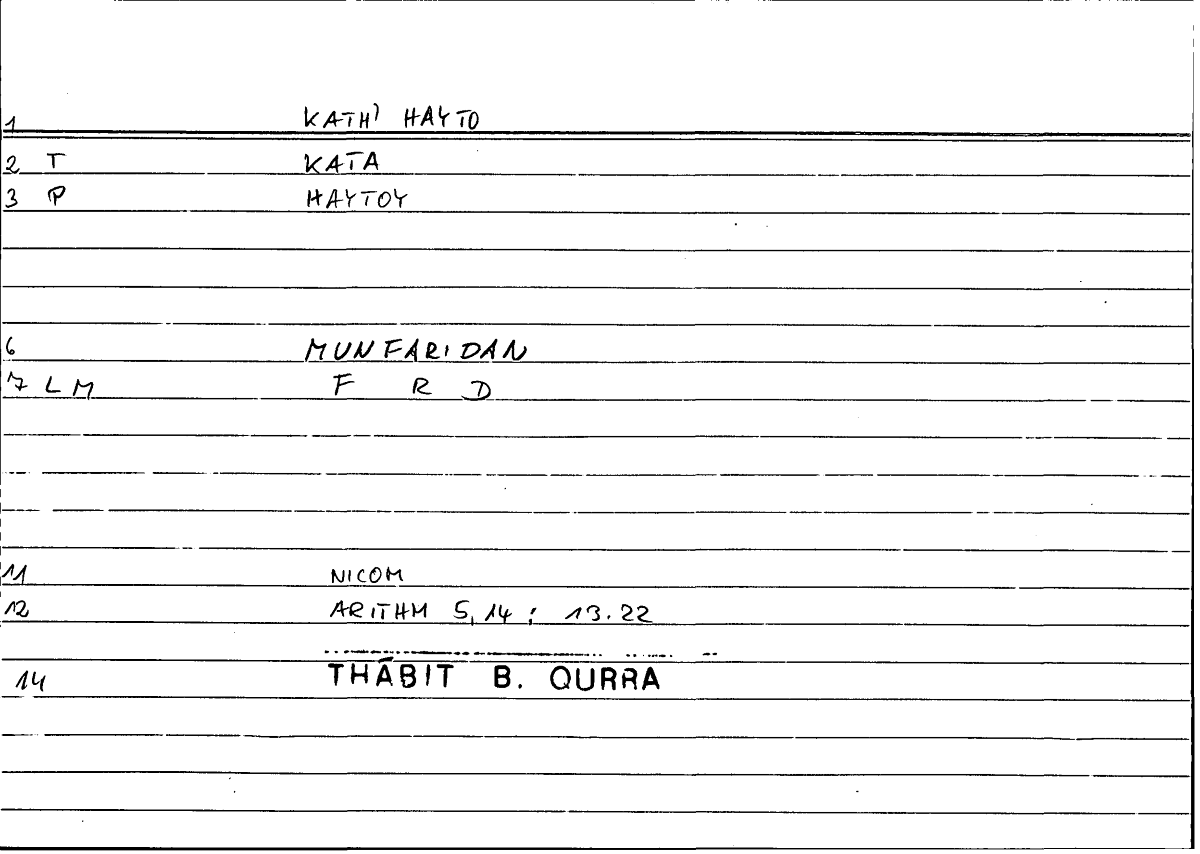 1 KATH' HAYTO
2 T KATA
3 P HAYTOY
6 MUNFARIDAN
7 LM F R D
11 NICOM
12 ARITHM 5,14 ; 13.22
14 THĀBIT B. QURRA